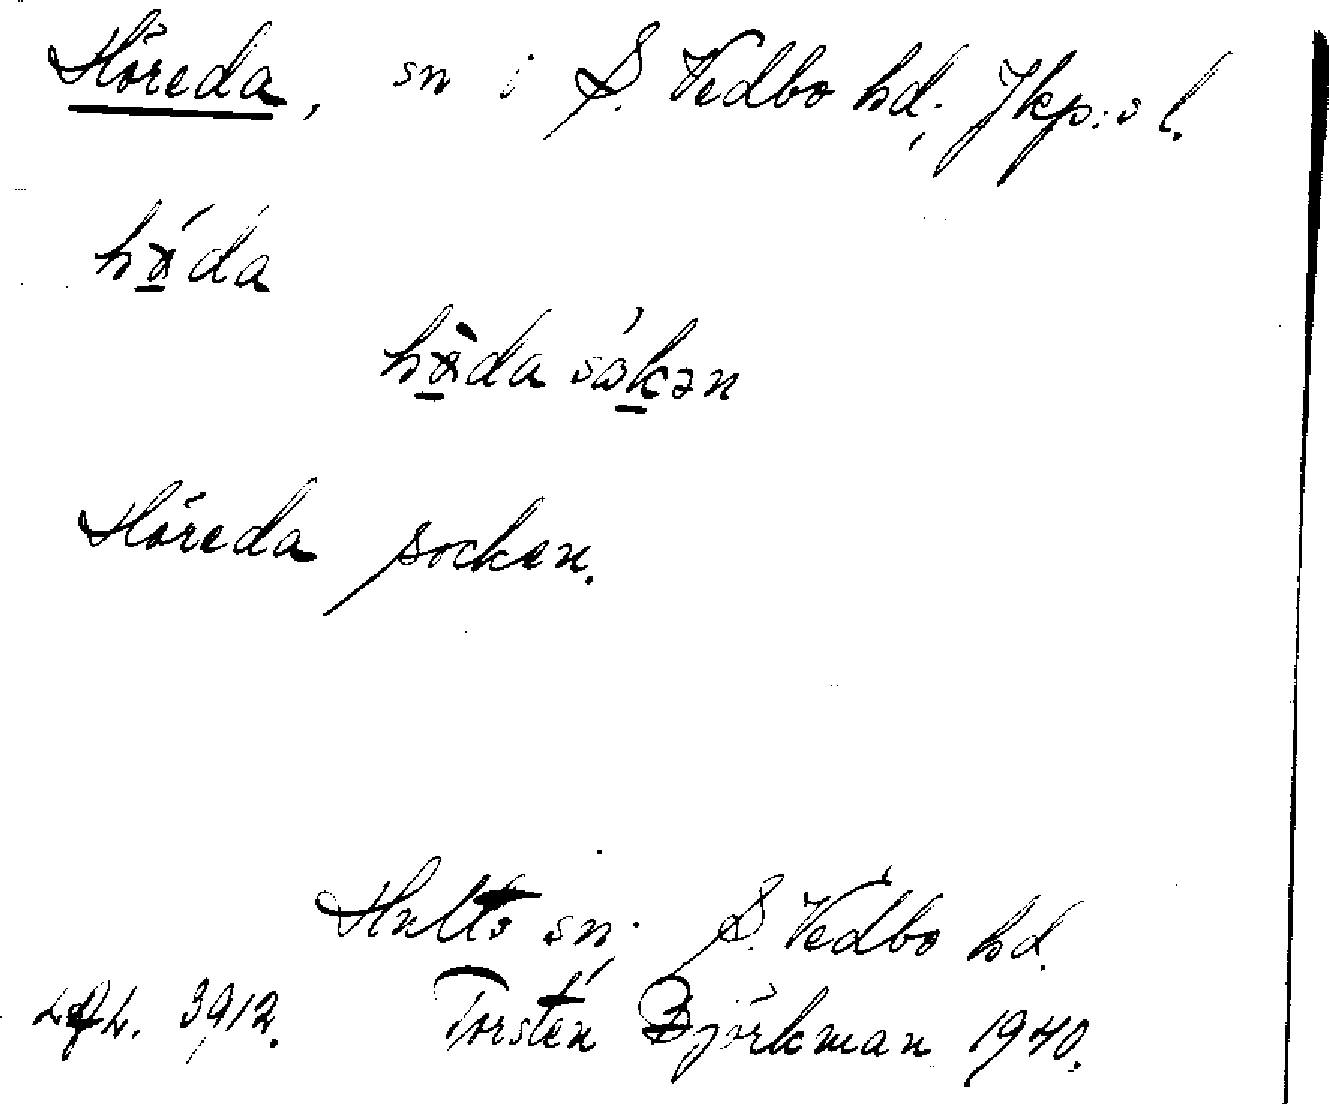 Höreda, sn i S. Vedbo hd, Jkp:s l.
hö́da
hö̀da såkən
Höreda socken.
Hults sn. S. Vedbo hd.
3912. Torsten Björkman 1940.